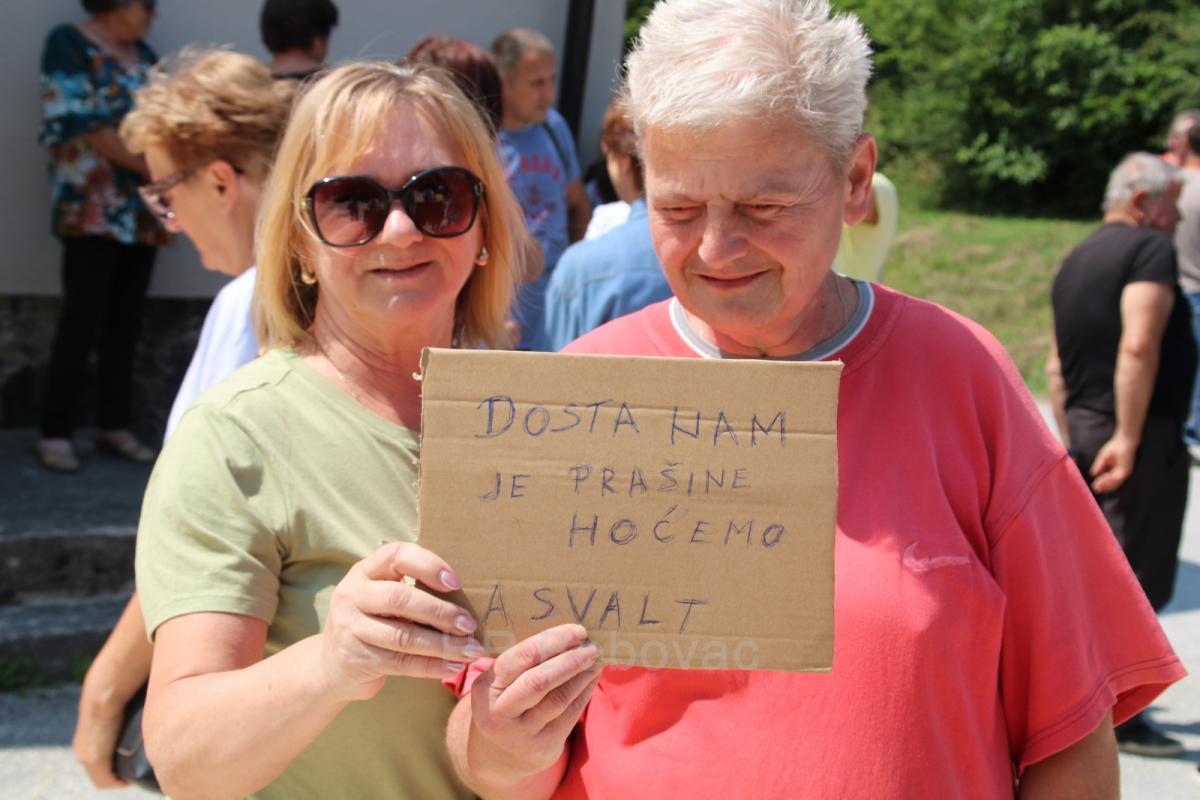 DOSTA NAM
JE PRAŠINE
HOĆEMO
ASVALT